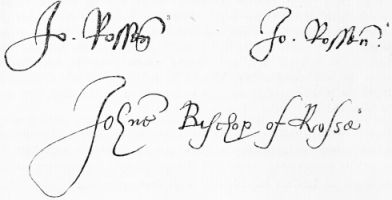 Jo. Rossen̄ Jo. Rossen̄.
Johne Bischop of Rosse